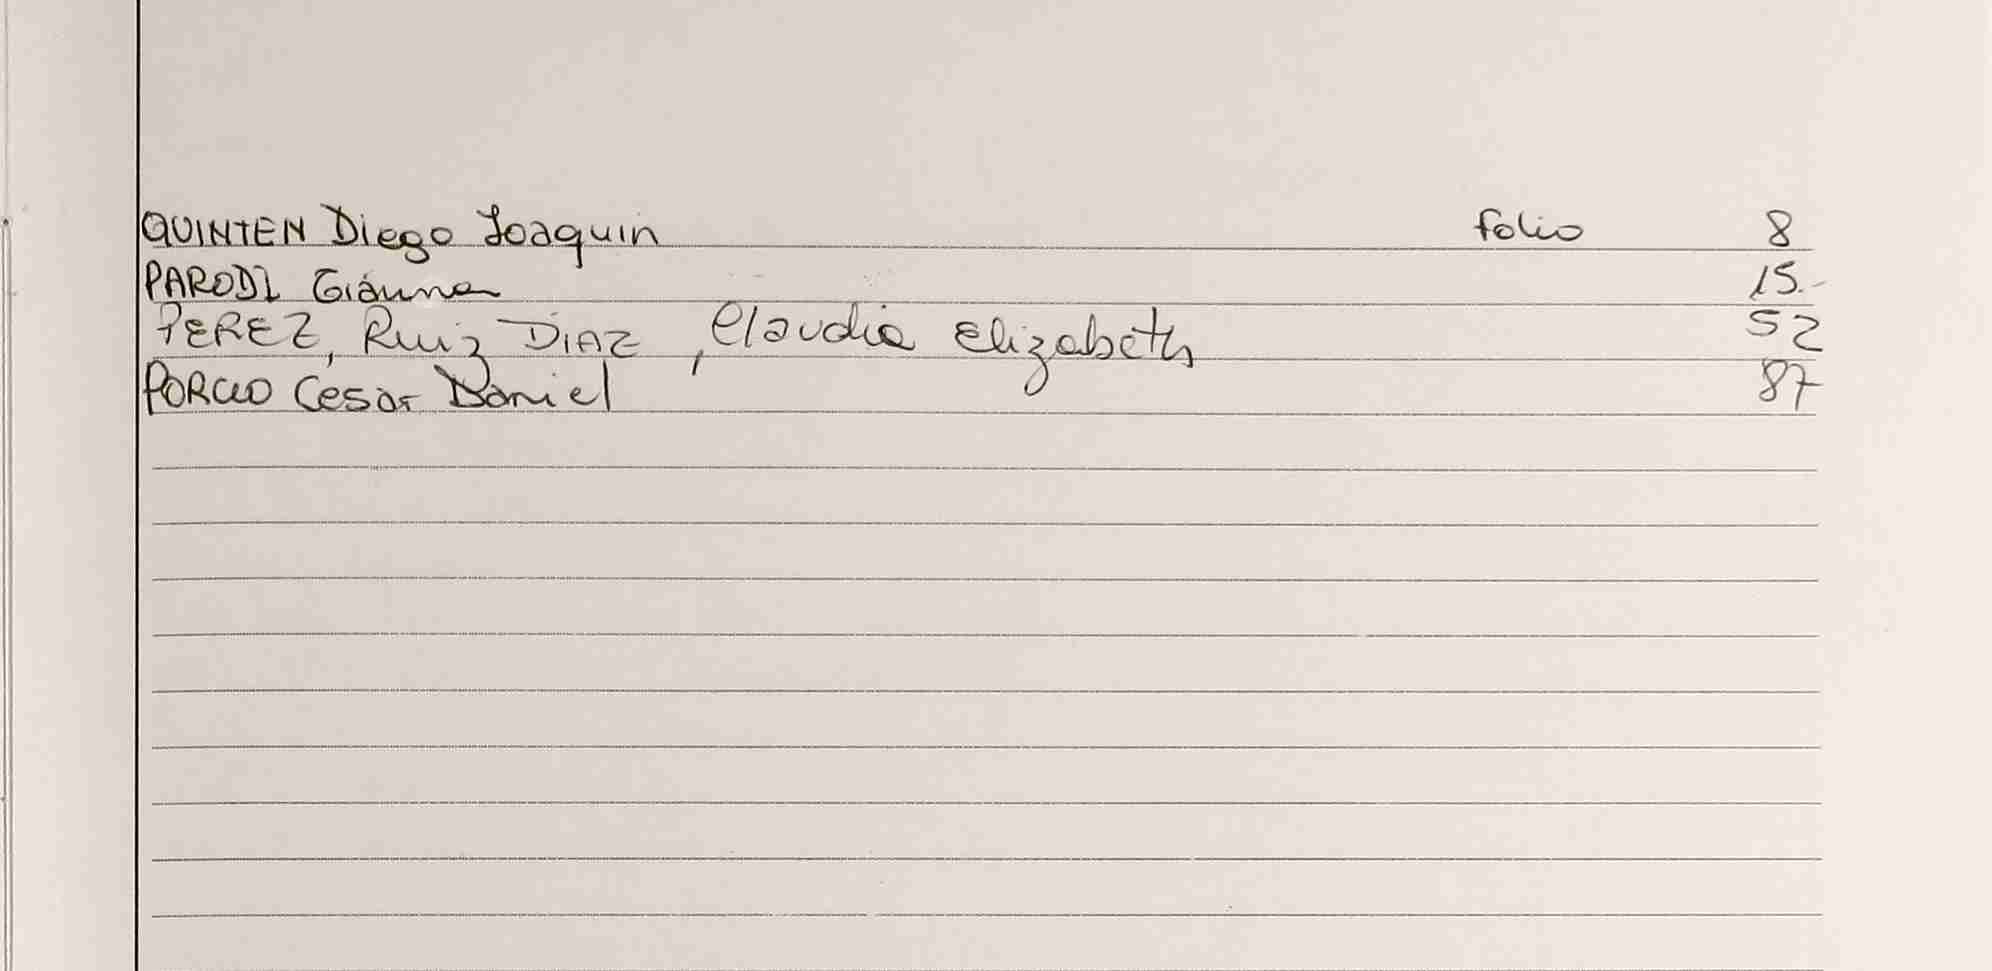 QUINTEN Diego Joaquin folio 8
PARODI Gianna 15.-
PEREZ, Ruiz DIAZ, Claudia Elizabeth 52
PORCIO Cesar Daniel 87